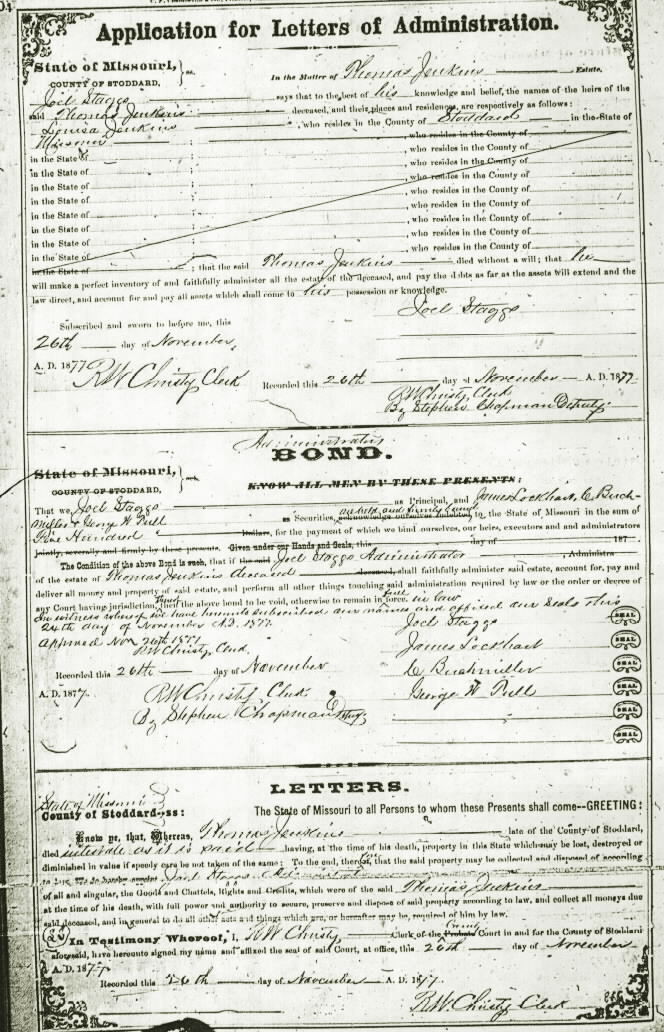 Application for Letters of Administration.
State of Missouri,
COUNTY OF STODDARD, } ss.
In the Matter of Thomas Jenkins Estate.
Joel Staggs says that to the best of his knowledge and belief, the names of the heirs of the
said Thomas Jenkins deceased, and their places and residences, are respectively as follows:
Louisa Jenkins , who resides in the County of Stoddard in the State of
Missouri ; who resides in the County of
in the State of , who resides in the County of
in the State of , who resides in the County of
in the State of , who resides in the County of
in the State of , who resides in the County of
in the State of , who resides in the County of
in the State of , who resides in the County of
in the State of , who resides in the County of
in the State of , who resides in the County of
in the State of ; that the said Thomas Jenkins died without a will; that he
will make a perfect inventory of and faithfully administer all the estate of the deceased, and pay the debts as far as the assets will extend and the
law direct, and account for and pay all assets which shall come to his possession or knowledge.
Joel Staggs
Subscribed and sworn to before me, this
26th day of November,
A. D. 1877 R W Christy Clerk
Recorded this 26th day of November A. D. 1877
R W Christy, Clerk
By Stephen Chapman Deputy
Administrators
BOND.
State of Missouri,
COUNTY OF STODDARD. } ss.
KNOW ALL MEN BY THESE PRESENTS:
That we, Joel Staggs as Principal, and James Lockhart, C Buch-
miller & George W Pull as Securities, are held and firmly bound acknowledge ourselves indebted, to the State of Missouri in the sum of
Five Hundred Dollars, for the payment of which we bind ourselves, our heirs, executors and and administrators
jointly, severally and firmly by these presents. Given under our Hands and Seals, this day of 187
The Condition of the above Bond is such, that if the said Joel Staggs Administrator Administra
of the estate of Thomas Jenkins deceased deceased, shall faithfully administer said estate, account for, pay and
deliver all money and property of said estate, and perform all other things touching said administration required by law or the order or decree of
any Court having jurisdiction, then the above bond to be void, otherwise to remain in full force in law
In witness whereof we have hereunto subscribed our names and affixed our seals this
26th day of November A.D. 1877.
Joel Staggs SEAL
Approved Nov 26th 1877
R W Christy, Clerk.
James Lockhart SEAL
C Buchmiller SEAL
Recorded this 26th day of November
George W Pull SEAL
A. D. 1877. R W Christy Clerk
By Stephen Chapman Dpty
SEAL
SEAL
LETTERS.
State of Missouri
County of Stoddard--ss:
The State of Missouri to all Persons to whom these Presents shall come--GREETING:
Know ye, that, Whereas, Thomas Jenkins late of the County of Stoddard,
died intestate as it is said having, at the time of his death, property in this State which may be lost, destroyed or
diminished in value if speedy care be not taken of the same: To the end, therefore, that the said property may be collected and disposed of according
Joel Staggs
of all and singular, the Goods and Chattels, Rights and Credits, which were of the said Thomas Jenkins
at the time of his death, with full power and authority to secure, preserve and dispose of said property according to law, and collect all moneys due
said deceased, and in general to do all other acts and things which are, or hereafter may be, required of him by law.
In Testimony Whereof, I, R W Christy Clerk of the Probate Court in and for the County of Stoddard
aforesaid, have hereunto signed my name and affixed the seal of said Court, at office, this 26th day of November
A. D. 1877
Recorded this 26th day of November A. D. 1877.
R W. Christy Clerk